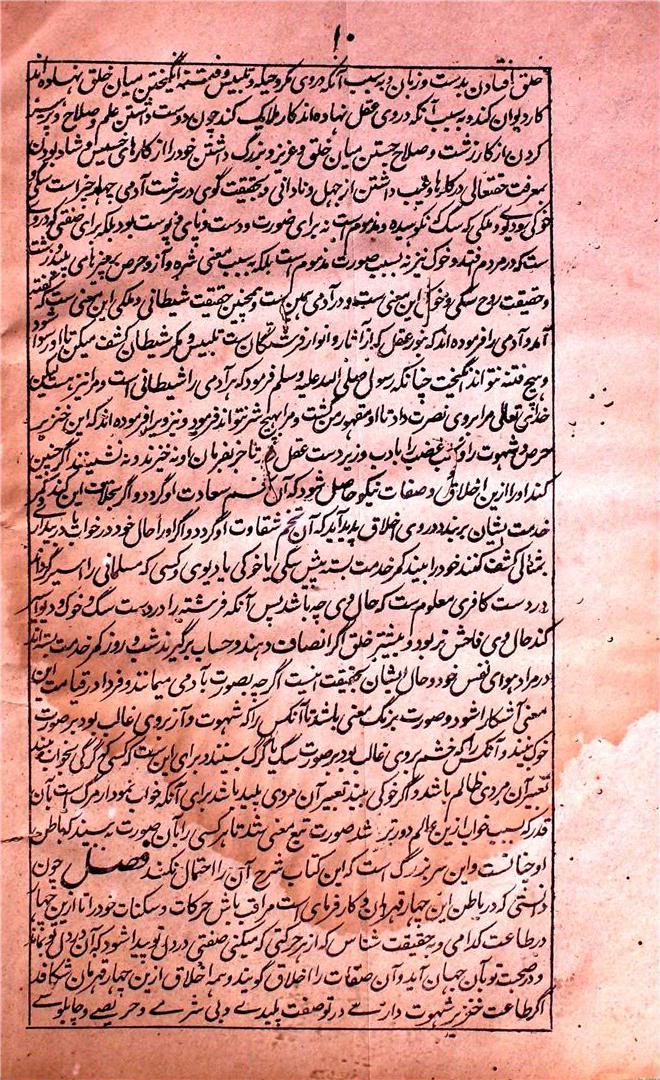 ۱۰
خلق افتادن بدست و زبان و بسبب آنکه در وی مکر و حیله و تلبیس و فتنه انگیختن میان خلق بنهاده اند
کار دیوان کند و بسبب آنکه در وی عقل نهاده اند کار ملایک کند چون دوست داشتن علم و صلاح و پرهیز
کردن از کار زشت و صلاح جستن میان خلق و عزیز و بزرگ داشتن خود را از کارهای خسیس و شاد بودن
بمعرفت حقتعالی در کارها و عیب داشتن از جهل و نادانی و بحقیقت گوی در سرشت آدمی چهار چیز است سگی
خوکی دیوی و ملکی که سگ که نکوهیده و مذموم است نه برای صورت و دست و پای و پوست بود بلکه برای صفتی که در وی
است که در مردم افتد و خوک نیز نه بسبب صورت مذموم است بلکه بسبب معنی شره و آز و حرص بچیزهای پلید و زشت
و حقیقت روح سگی و خوکی این معنی است و در آدمی همین است و همچنین حقیقت شیطانی و ملکی این معنی است که گفته
آمد و آدمی را فرموده اند که بنور عقل که از آثار و انوار فرشتگان است تلبیس و مکر شیطان کشف میکن تا او رسوا شود
و هیچ فتنه نتواند انگیخت چنانکه رسول صلی الله علیه وسلم فرمود که هر آدمی را شیطانی است و مرا نیز هست لیکن
خدای تعالی مرا بر وی نصرت داد تا او مقهور من گشت و مرا بهیچ شر نتواند فرمود و نیز ویرا فرموده اند که این خنزیر
حرص و شهوت را و کلب غضب را بادب و زیر دست عقل تا جز بفرمان او نه خیزند و نه نشینند اگر چنین
کند او را ازین اخلاق و صفات نیکو حاصل شود که آن تخم سعادت او گردد و اگر بخلاف این کند و کمر
خدمت ایشان بربندد در وی اخلاق بد پدید آید که آن تخم شقاوت او گردد و اگر او را حال خود در خواب یا در بیداری
بمثالی کشف کنند خود را بیند کمر خدمت بسته پیش سگی یا خوکی یا دیوی و کسی که مسلمانی را اسیر گرداند
در دست کافری معلوم است که حال وی چه باشد پس آنکه فرشته را در دست سگ و خوک و دیو اسیر
کند حال وی فاحش تر بود و بیشتر خلق اگر انصاف دهند و حساب برگیرند شب و روز کمر خدمت بسته اند
در مراد هوای نفس خود و حال ایشان بحقیقت اینست اگر چه بصورت با آدمی میمانند و فردا در قیامت این
معنی آشکارا شود و صورت برنگ معنی باشد تا آنکس را که شهوت و آز بر وی غالب بود بر صورت
خوک بینند و آنکس را که خشم بر وی غالب بود بر صورت سگ یا گرگ بینند و برای این است که کسی گرگی بخواب بیند
تعبیر آن مردی ظالم باشد و اگر خوکی بیند تعبیر آن مردی پلید باشد برای آنکه خواب نمودار مرگ است بآن
قدر که بسبب خواب ازین عالم دورتر شد صورت تبع معنی شد تا هر کسی را بآن صورت بیند که باطن
او چنانست و این سر بزرگ است که این کتاب شرح آن را احتمال نکند فصل چون
دانستی که در باطن این چهار قهرمان و کارفرمای است مراقب باش حرکات و سکنات خود را تا ازین چهار
در طاعت کدامی و بحقیقت شناس که از هر حرکتی که میکنی صفتی در دل تو پیدا شود که آن در دل تو بماند
و در صحبت تو بآن جهان آید و آن صفات را اخلاق گویند و همه اخلاق ازین چهار قهرمان شکافد
اگر طاعت خنزیر شهوت داری در تو صفت پلیدی و بی شرمی و حریصی و چاپلوسی